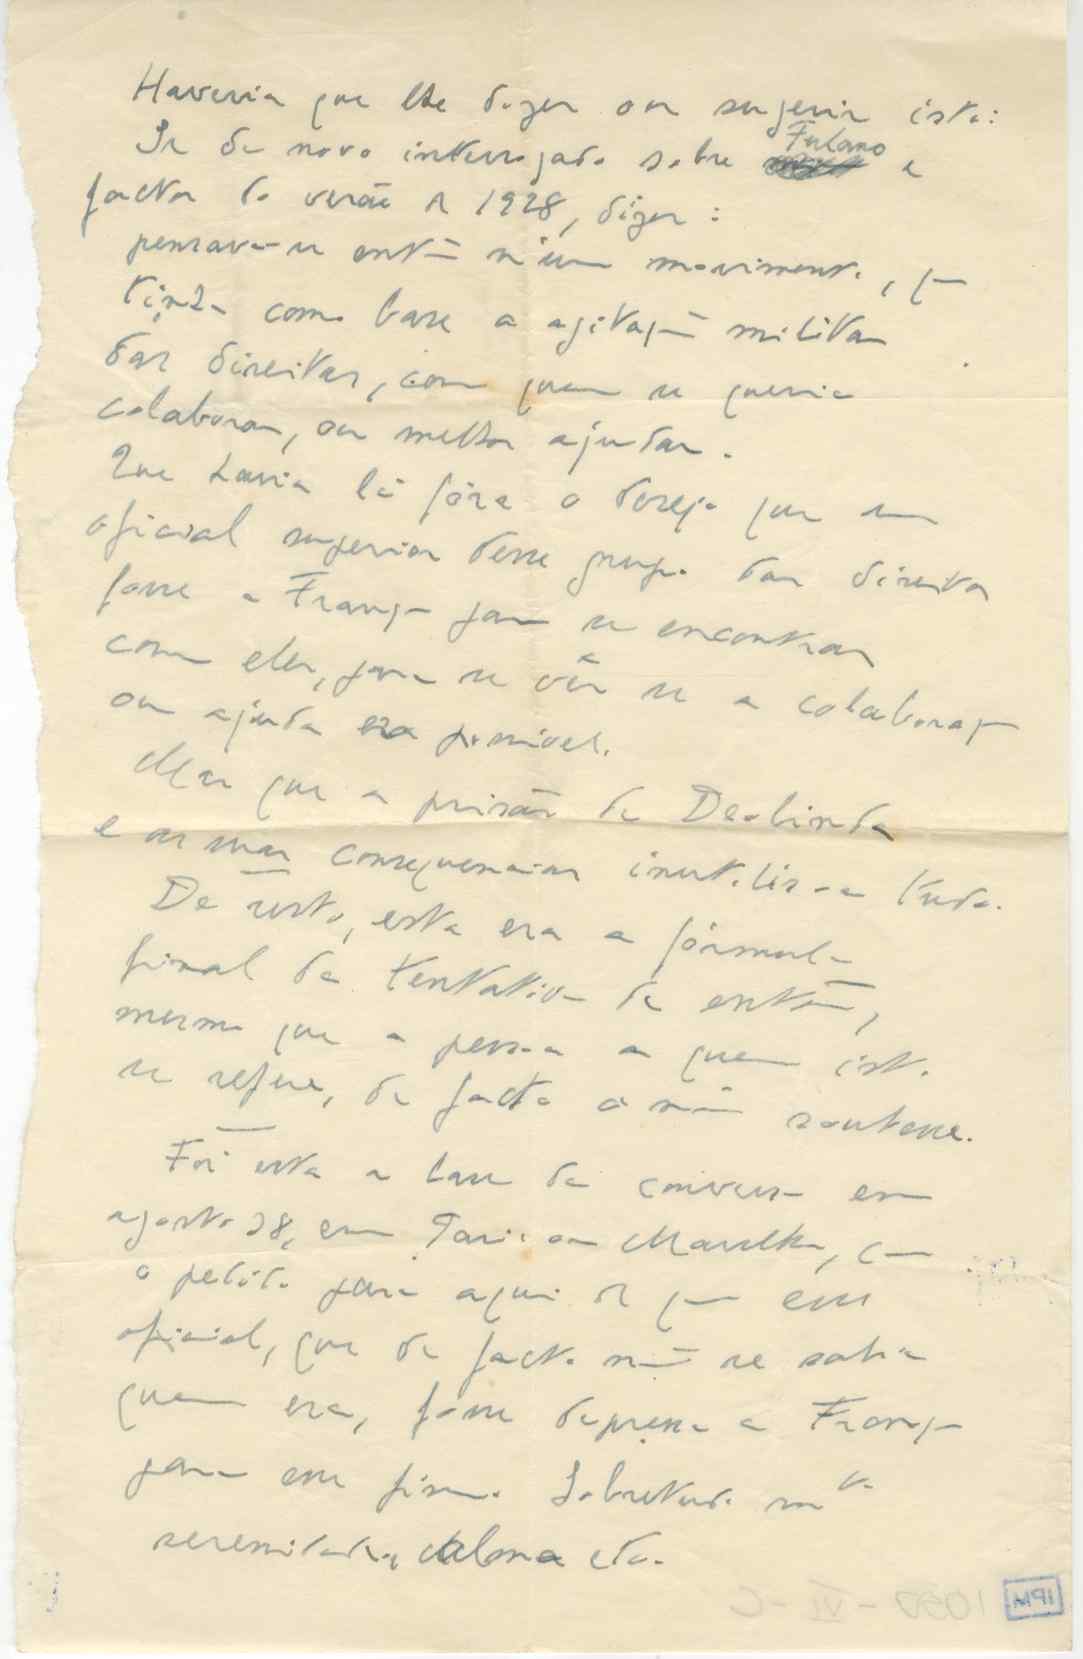 Haveria que lhe dizer ou sugerir isto:
Se de novo interrogado sobre Fulano e
factos do verão de 1928, dizer:
pensava-se então n'um movimento, que
tinha como base a agitação militar
das direitas, com quem se queria
colaborar, ou melhor ajudar.
Que havia lá fóra o desejo que um
oficial superior desse grupo das direitas
fosse a França para se encontrar
com eles, para se vêr se a colaboração
ou ajuda era possivel.
Mas que a prisão de Deolinda
e as suas consequencias inutilisou tudo.
De resto, esta era a fórmula
final da tentativa de então,
mesmo que a pessoa a quem isto
se refere, de facto o não soubesse.
Foi esta a base da conversa em
agosto 28, em Paris ou Marselha, com
o pedido para aqui de que esse
oficial, que de facto não se sabia
quem era, fosse depressa a França
para esse fim. Sobretudo mta
serenidade, calma etc.
1090 - VI - C
IPM